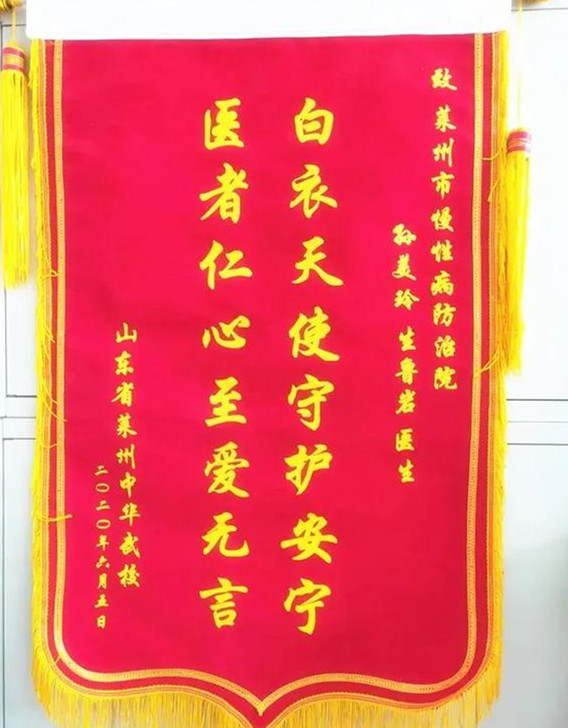 致 莱州市慢性病防治院
孙美玲 生鲁岩 医生
白衣天使守护安宁
医者仁心至爱无言
山东省莱州中华武校
二〇二〇年六月五日